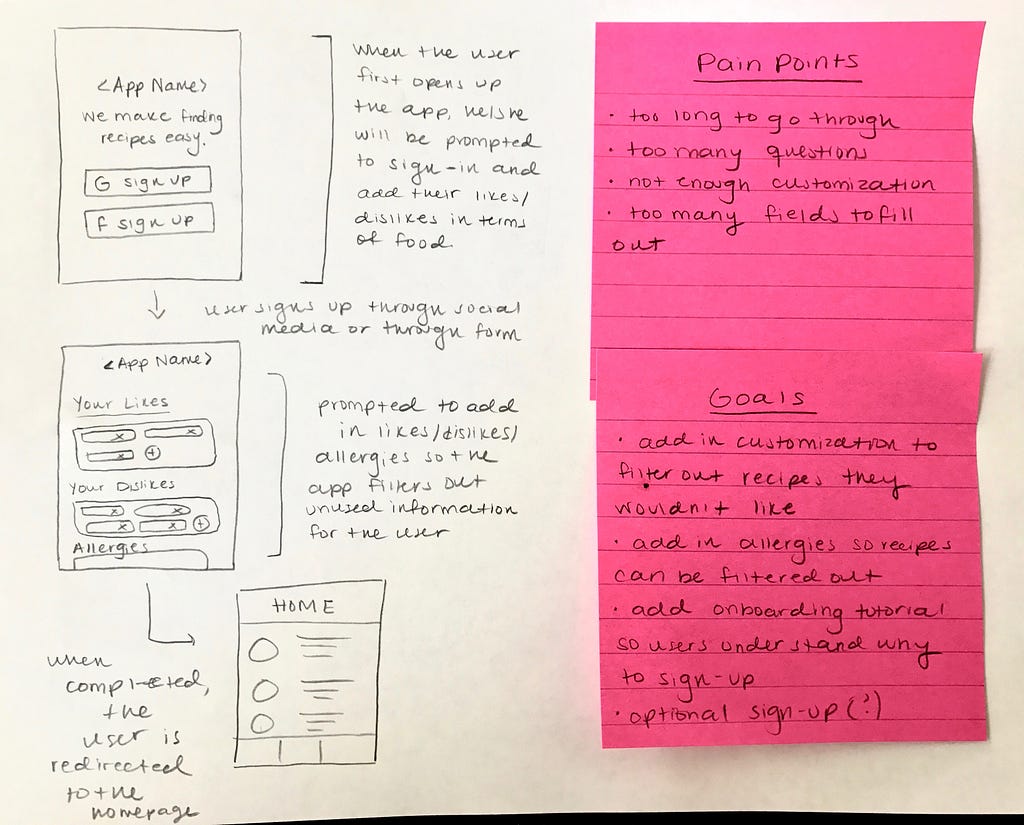 <App Name>
We make finding
recipes easy.
G sign up
F sign up
when the user
first opens up
the app, he/she
will be prompted
to sign-in and
add their likes/
dislikes in terms
of food.
user signs up through social
media or through form
<App Name>
Your Likes
x
x
x
+
Your Dislikes
x
x
x
x
+
Allergies
prompted to add
in likes/dislikes/
allergies so the
app filters out
unused information
for the user
HOME
when
completed,
the
user is
redirected
to the
homepage
Pain Points
· too long to go through
· too many questions
· not enough customization
· too many fields to fill
out
Goals
· add in customization to
filter out recipes they
wouldn't like
· add in allergies so recipes
can be filtered out
· add onboarding tutorial
so users understand why
to sign-up
· optional sign-up (?)